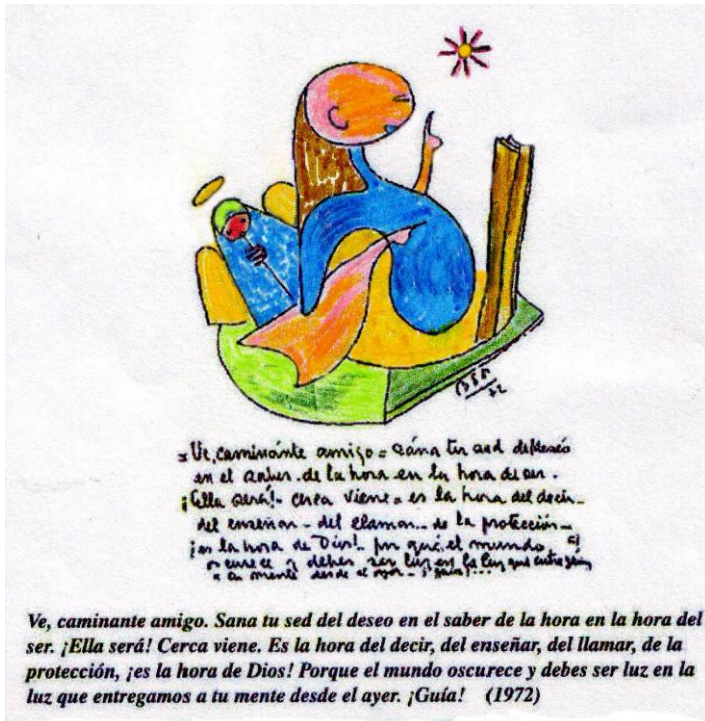 BSP
72
= Ve, caminante amigo = Sána tu sed del deseo
en el saber de la hora en la hora de ser.
¡Ella será!- cerca viene = es la hora del decir-
del enseñar - del llamar - de la protección -
¡es la hora de Dios!- por qué, el mundo
oscurece y debes ser luz en la luz que entregamos
a tu mente desde el ayer - ¡guía!...
Ve, caminante amigo. Sana tu sed del deseo en el saber de la hora en la hora del
ser. ¡Ella será! Cerca viene. Es la hora del decir, del enseñar, del llamar, de la
protección, ¡es la hora de Dios! Porque el mundo oscurece y debes ser luz en la
luz que entregamos a tu mente desde el ayer. ¡Guía! (1972)